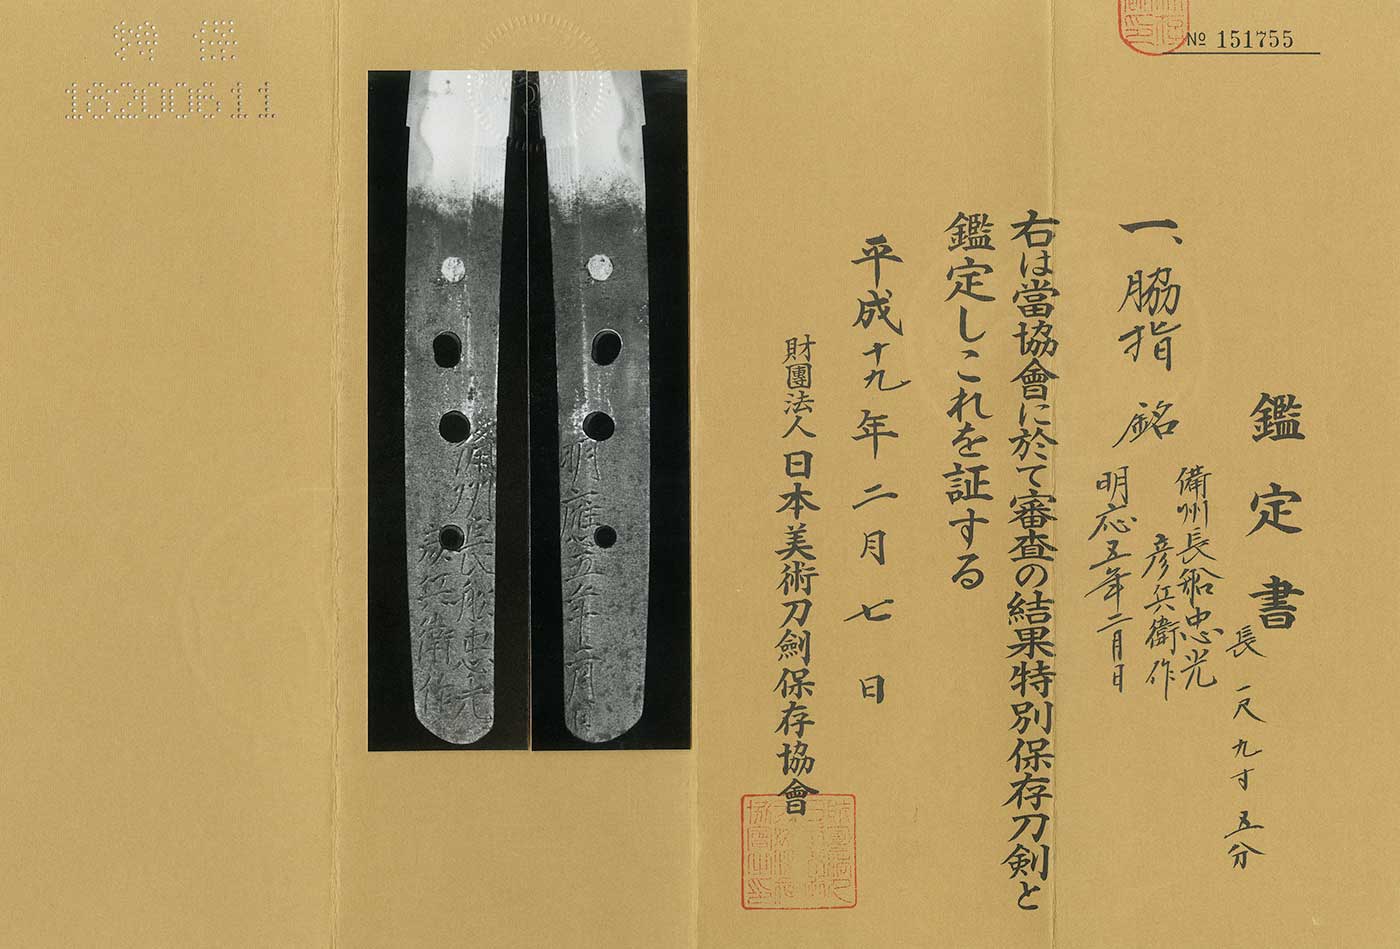 № 151755
鑑定書
長 一尺九寸五分
一、脇指 銘
備州長船忠光
彦兵衛作
明応五年二月日
右は當協會に於て審査の結果特別保存刀剣と
鑑定しこれを証する
平成十九年二月七日
財團法人日本美術刀劍保存協會
明應五年二月日
備州長船忠光
彦兵衛作
16200611